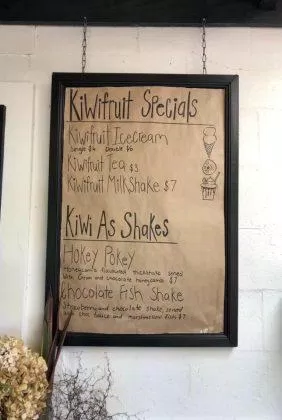 Kiwifruit Specials
Kiwifruit Icecream
Single $4 Double $6
Kiwifruit Tea $3
Kiwifruit MilkShake $7
Kiwi As Shakes
Hokey Pokey
Honeycomb flavoured thickshake served
with cream and chocolate honeycomb $7
Chocolate Fish Shake
Strawberry and chocolate shake, served
with choc sauce and marshmallow fish $7